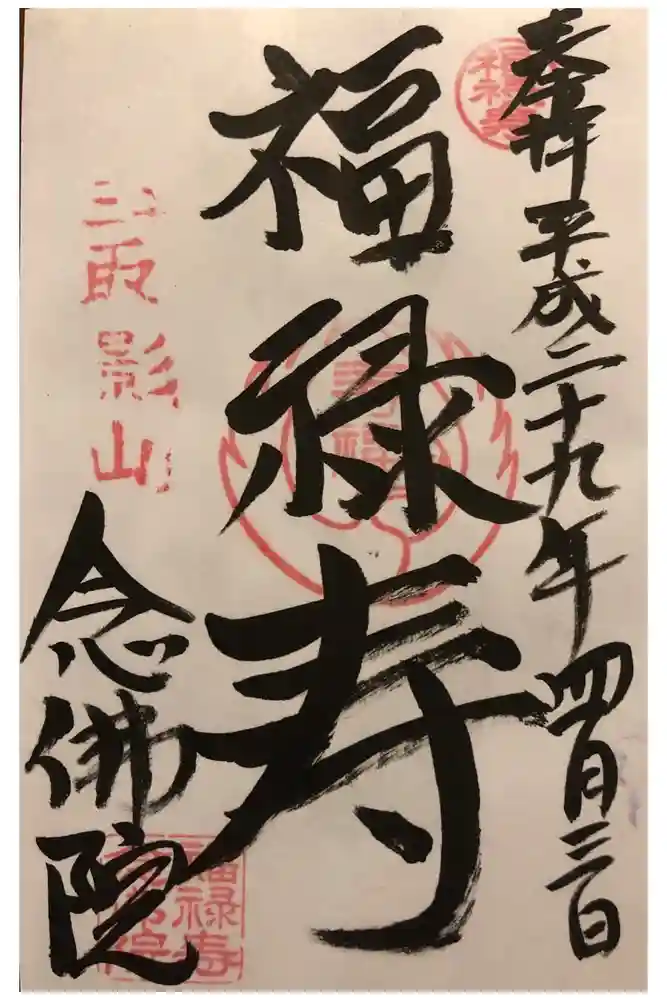 奉拝 平成二十九年四月三日
福禄寿
影山
念佛院
福禄寿